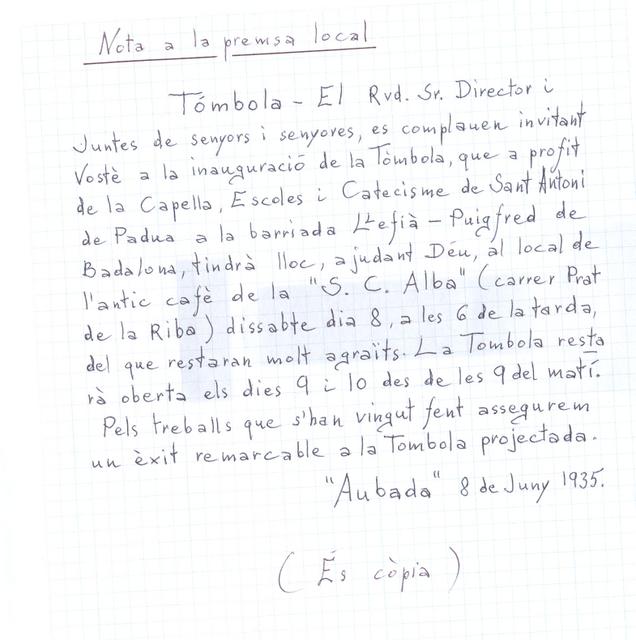 Nota a la premsa local
Tómbola - El Rvd. Sr. Director i
Juntes de senyors i senyores, es complauen invitant
Vostè a la inauguració de la Tòmbola, que a profit
de la Capella, Escoles i Catecisme de Sant Antoni
de Padua a la barriada Llefià - Puigfred de
Badalona, tindrà lloc, ajudant Déu, al local de
l'antic cafè de la "S. C. Alba" (carrer Prat
de la Riba) dissabte dia 8, a les 6 de la tarda,
del que restaran molt agraïts. La Tombola resta
rà oberta els dies 9 i 10 des de les 9 del matí.
Pels treballs que s'han vingut fent assegurem
un èxit remarcable a la Tombola projectada.
"Aubada" 8 de Juny 1935.
(És còpia)